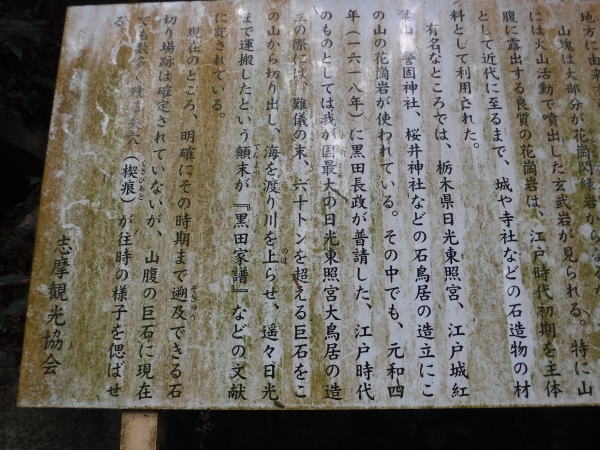 地方に由来す
山塊は大部分が花崗閃緑岩からなる
には火山活動で噴出した玄武岩が見られる。特に山
腹に露出する良質の花崗岩は、江戸時代初期を主体
として近代に至るまで、城や寺社などの石造物の材
料として利用された。
有名なところでは、栃木県日光東照宮、江戸城紅
葉山、警固神社、桜井神社などの石鳥居の造立にこ
の山の花崗岩が使われている。その中でも、元和四
年（一六一八年）に黒田長政が普請した、江戸時代
のものとしては我が国最大の日光東照宮大鳥居の造
立の際には、難儀の末、六十トンを超える巨石をこ
の山から切り出し、海を渡り川を上らせ、遥々日光
まで運搬したという顛末が『黒田家譜』などの文献
に記されている。
現在のところ、明確にその時期まで遡及できる石
切り場跡は確定されていないが、山腹の巨石に現在
でも数多く残る矢穴（楔痕）が往時の様子を偲ばせ
る。
志摩観光協会